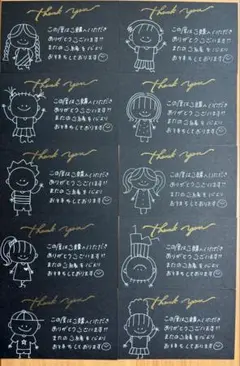 Thank you
この度はご購入いただき
ありがとうございます!!
またのご縁を心より
お待ちしております
Thank you
この度はご購入いただき
ありがとうございます!!
またのご縁を心より
お待ちしております
Thank you
この度はご購入いただき
ありがとうございます!!
またのご縁を心より
お待ちしております
Thank you
この度はご購入いただき
ありがとうございます!!
またのご縁を心より
お待ちしております
Thank you
この度はご購入いただき
ありがとうございます!!
またのご縁を心より
お待ちしております
Thank you
この度はご購入いただき
ありがとうございます!!
またのご縁を心より
お待ちしております
Thank you
この度はご購入いただき
ありがとうございます!!
またのご縁を心より
お待ちしております
Thank you
この度はご購入いただき
ありがとうございます!!
またのご縁を心より
お待ちしております
Thank you
この度はご購入いただき
ありがとうございます!!
またのご縁を心より
お待ちしております
Thank you
この度はご購入いただき
ありがとうございます!!
またのご縁を心より
お待ちしております